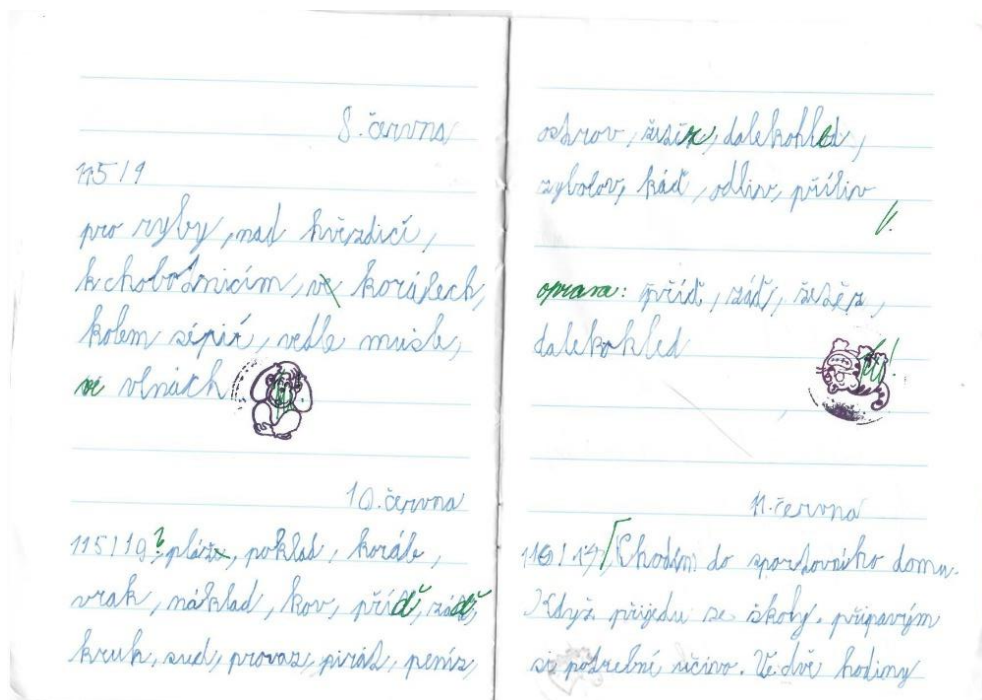 8. června
115/9
pro ryby, nad hvězdicí,
k chobotnicím, ve korálech,
kolem sépií, vedle mušle,
ve vlnách
10. června
115/10? pláže, poklad, korále,
vrak, náklad, kov, příď, záď,
kruh, sud, provaz, pirát, peníz,
ostrov, žežěz, dalekohled,
rybolov, káď, odliv, příliv
oprava: příď, záď,
dalekohled
11. června
116/14 Chodím do sportovního domu.
Když přijedu ze školy, připravím
si potřebné učivo. Ve dvě hodiny